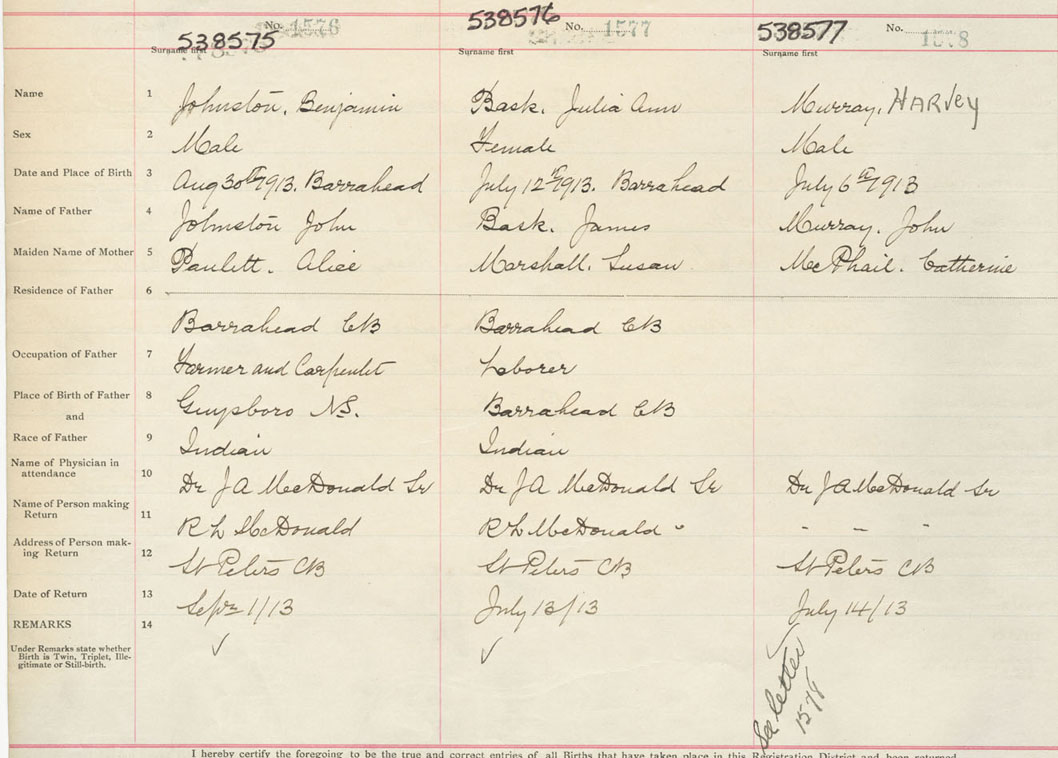 538575 No. 1576 538576 No. 1577 538577 No. 1578
Surname first Surname first Surname first
Name 1 Johnston, Benjamin Bask. Julia Ann Murray, HARVey
Sex 2 Male Female Male
Date and Place of Birth 3 Aug 30th 1913. Barrahead July 12th 1913. Barrahead July 6th 1913
Name of Father 4 Johnston John Bask. James Murray. John
Maiden Name of Mother 5 Paulett. Alice Marshall. Susan McPhail. Catherine
Residence of Father 6
Barrahead CB Barrahead CB
Occupation of Father 7 Farmer and Carpenter Laborer
Place of Birth of Father 8 Guysboro N.S. Barrahead CB
and
Race of Father 9 Indian Indian
Name of Physician in
attendance 10 Dr J A McDonald Sr Dr J A McDonald Sr Dr J A McDonald Sr
Name of Person making
Return 11 R L McDonald R L McDonald " " — "
Address of Person mak-
ing Return 12 St Peters CB St Peters CB St Peters CB
Date of Return 13 Sept 1/13 July 13/13 July 14/13
REMARKS 14 ✓ ✓ ✓
Under Remarks state whether
Birth is Twin, Triplet, Ille-
gitimate or Still-birth.
See letter
1578
I hereby certify the foregoing to be the true and correct entries of all Births that have taken place in this Registration District and been returned